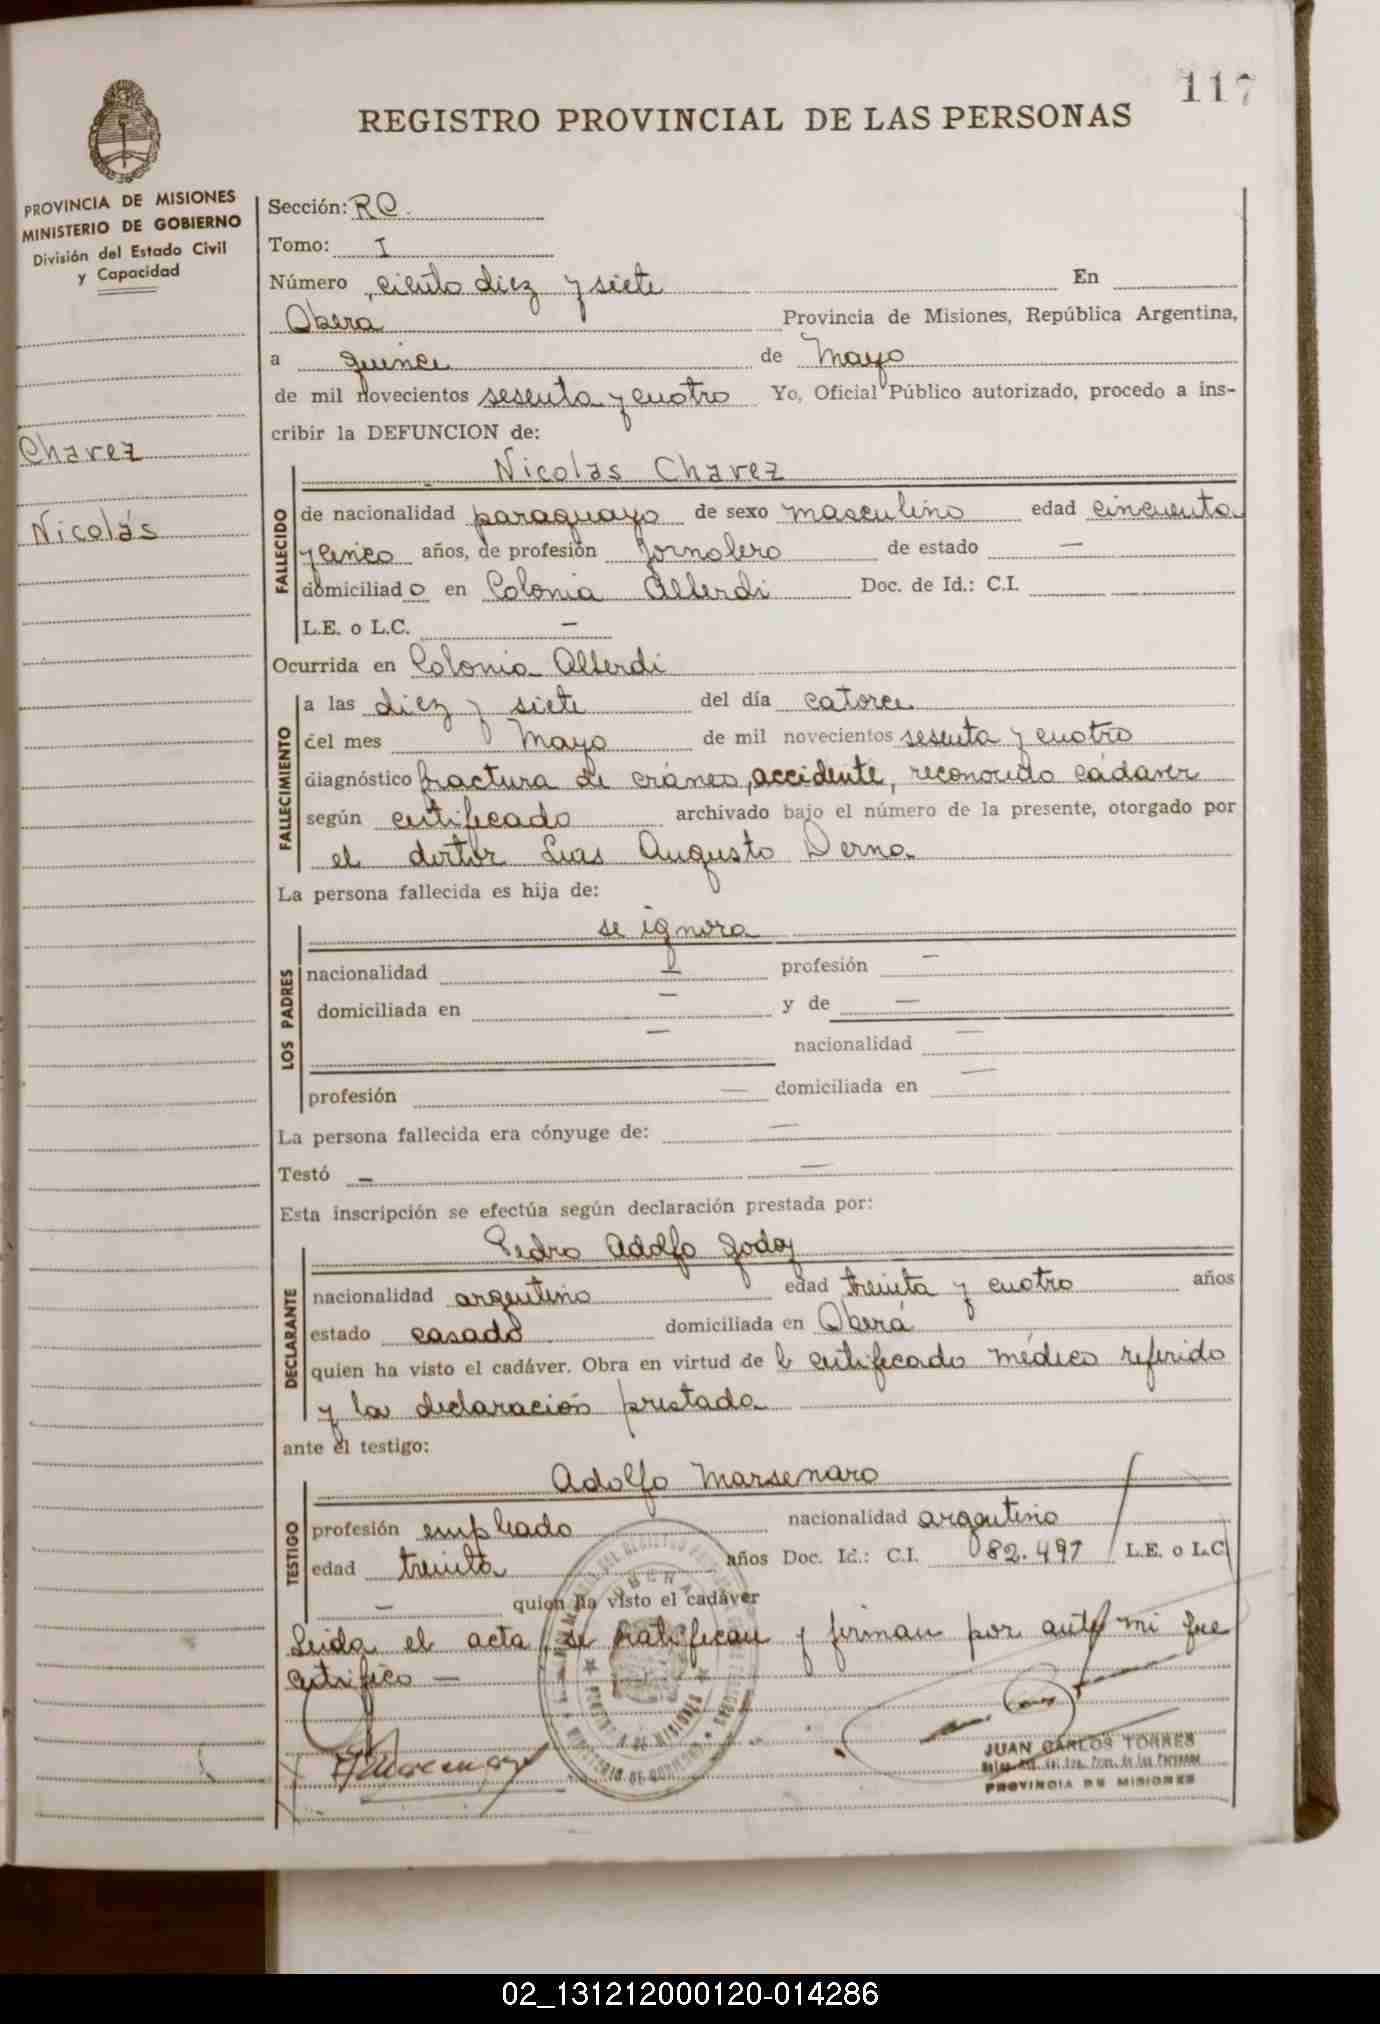 117
REGISTRO PROVINCIAL DE LAS PERSONAS
PROVINCIA DE MISIONES
MINISTERIO DE GOBIERNO
División del Estado Civil
y Capacidad
Chavez
Nicolás
Sección: RC.
Tomo: I
Número ciento diez y siete En
Obera Provincia de Misiones, República Argentina,
a quince de Mayo
de mil novecientos sesenta y cuatro Yo, Oficial Público autorizado, procedo a ins-
cribir la DEFUNCION de:
Nicolás Chavez
FALLECIDO
de nacionalidad paraguayo de sexo masculino edad cincuenta
y cinco años, de profesión Jornalero de estado —
domiciliado en Colonia Alberdi Doc. de Id.: C.I.
L.E. o L.C. —
Ocurrida en Colonia Alberdi
FALLECIMIENTO
a las diez y siete del día catorce
del mes Mayo de mil novecientos sesenta y cuatro
diagnóstico fractura de cráneo, accidente, reconocido cádaver
según certificado archivado bajo el número de la presente, otorgado por
el doctor Luis Augusto Derna
La persona fallecida es hija de:
se ignora
LOS PADRES
nacionalidad — profesión —
domiciliada en — y de —
— nacionalidad —
profesión — domiciliada en —
La persona fallecida era cónyuge de: —
Testó — —
Esta inscripción se efectúa según declaración prestada por:
Pedro Adolfo Godoy
DECLARANTE
nacionalidad argentino edad treinta y cuatro años
estado casado domiciliada en Oberá
quien ha visto el cadáver. Obra en virtud de el certificado médico referido
y la declaración prestada
ante el testigo:
Adolfo Marsenaro
TESTIGO
profesión empleado nacionalidad argentino
edad treinta años Doc. Id.: C.I. 082.497 L.E. o L.C
— quien ha visto el cadáver
Leida el acta, se ratifican y firman por ante mi que
certifico —
OBERA
JUAN CARLOS TORRES
PROVINCIA DE MISIONES
02_131212000120-014286